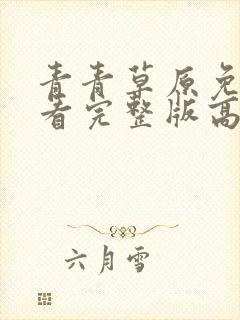 青青草原免
看完整版高
六月雪